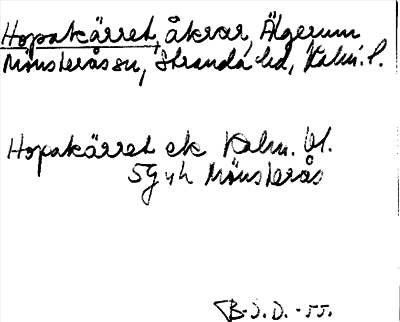 Hopakärret, åkrar, Älgerum
Mönsterås sn, Stranda hd, Kalm. l.
Hopakärret ek Kalm. bl.
5G 4h Mönsterås
B.S.D. -55.